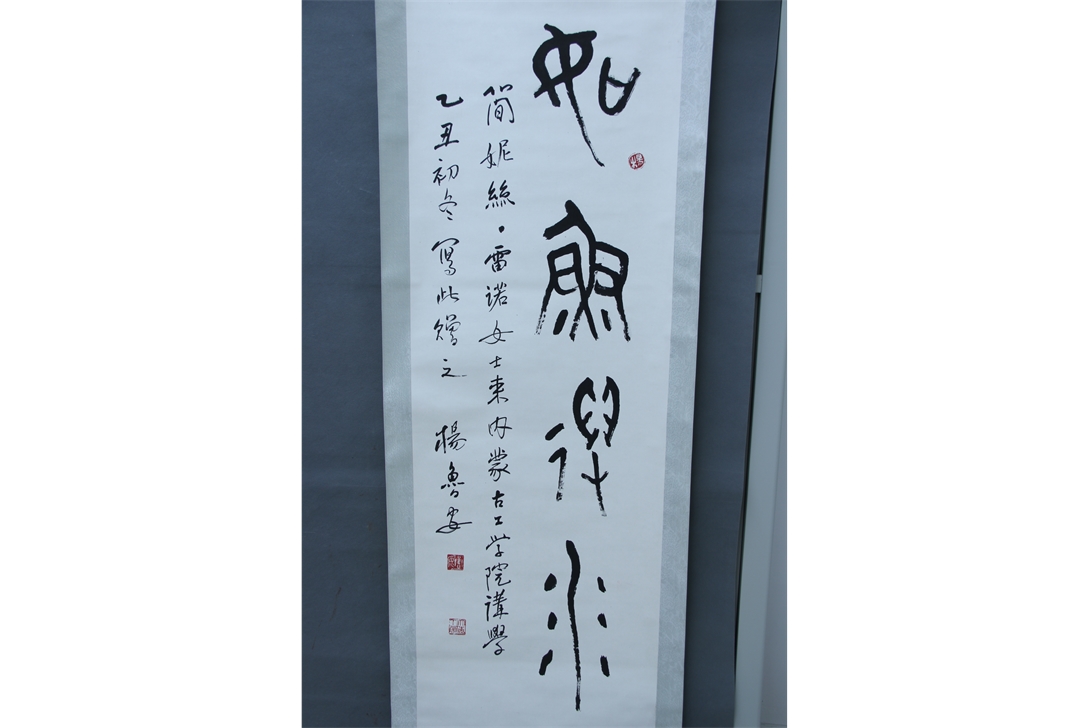 如魚得水
简妮絲·雷诺女士来内蒙古工学院講學
乙丑初冬寫此贈之 楊魯安